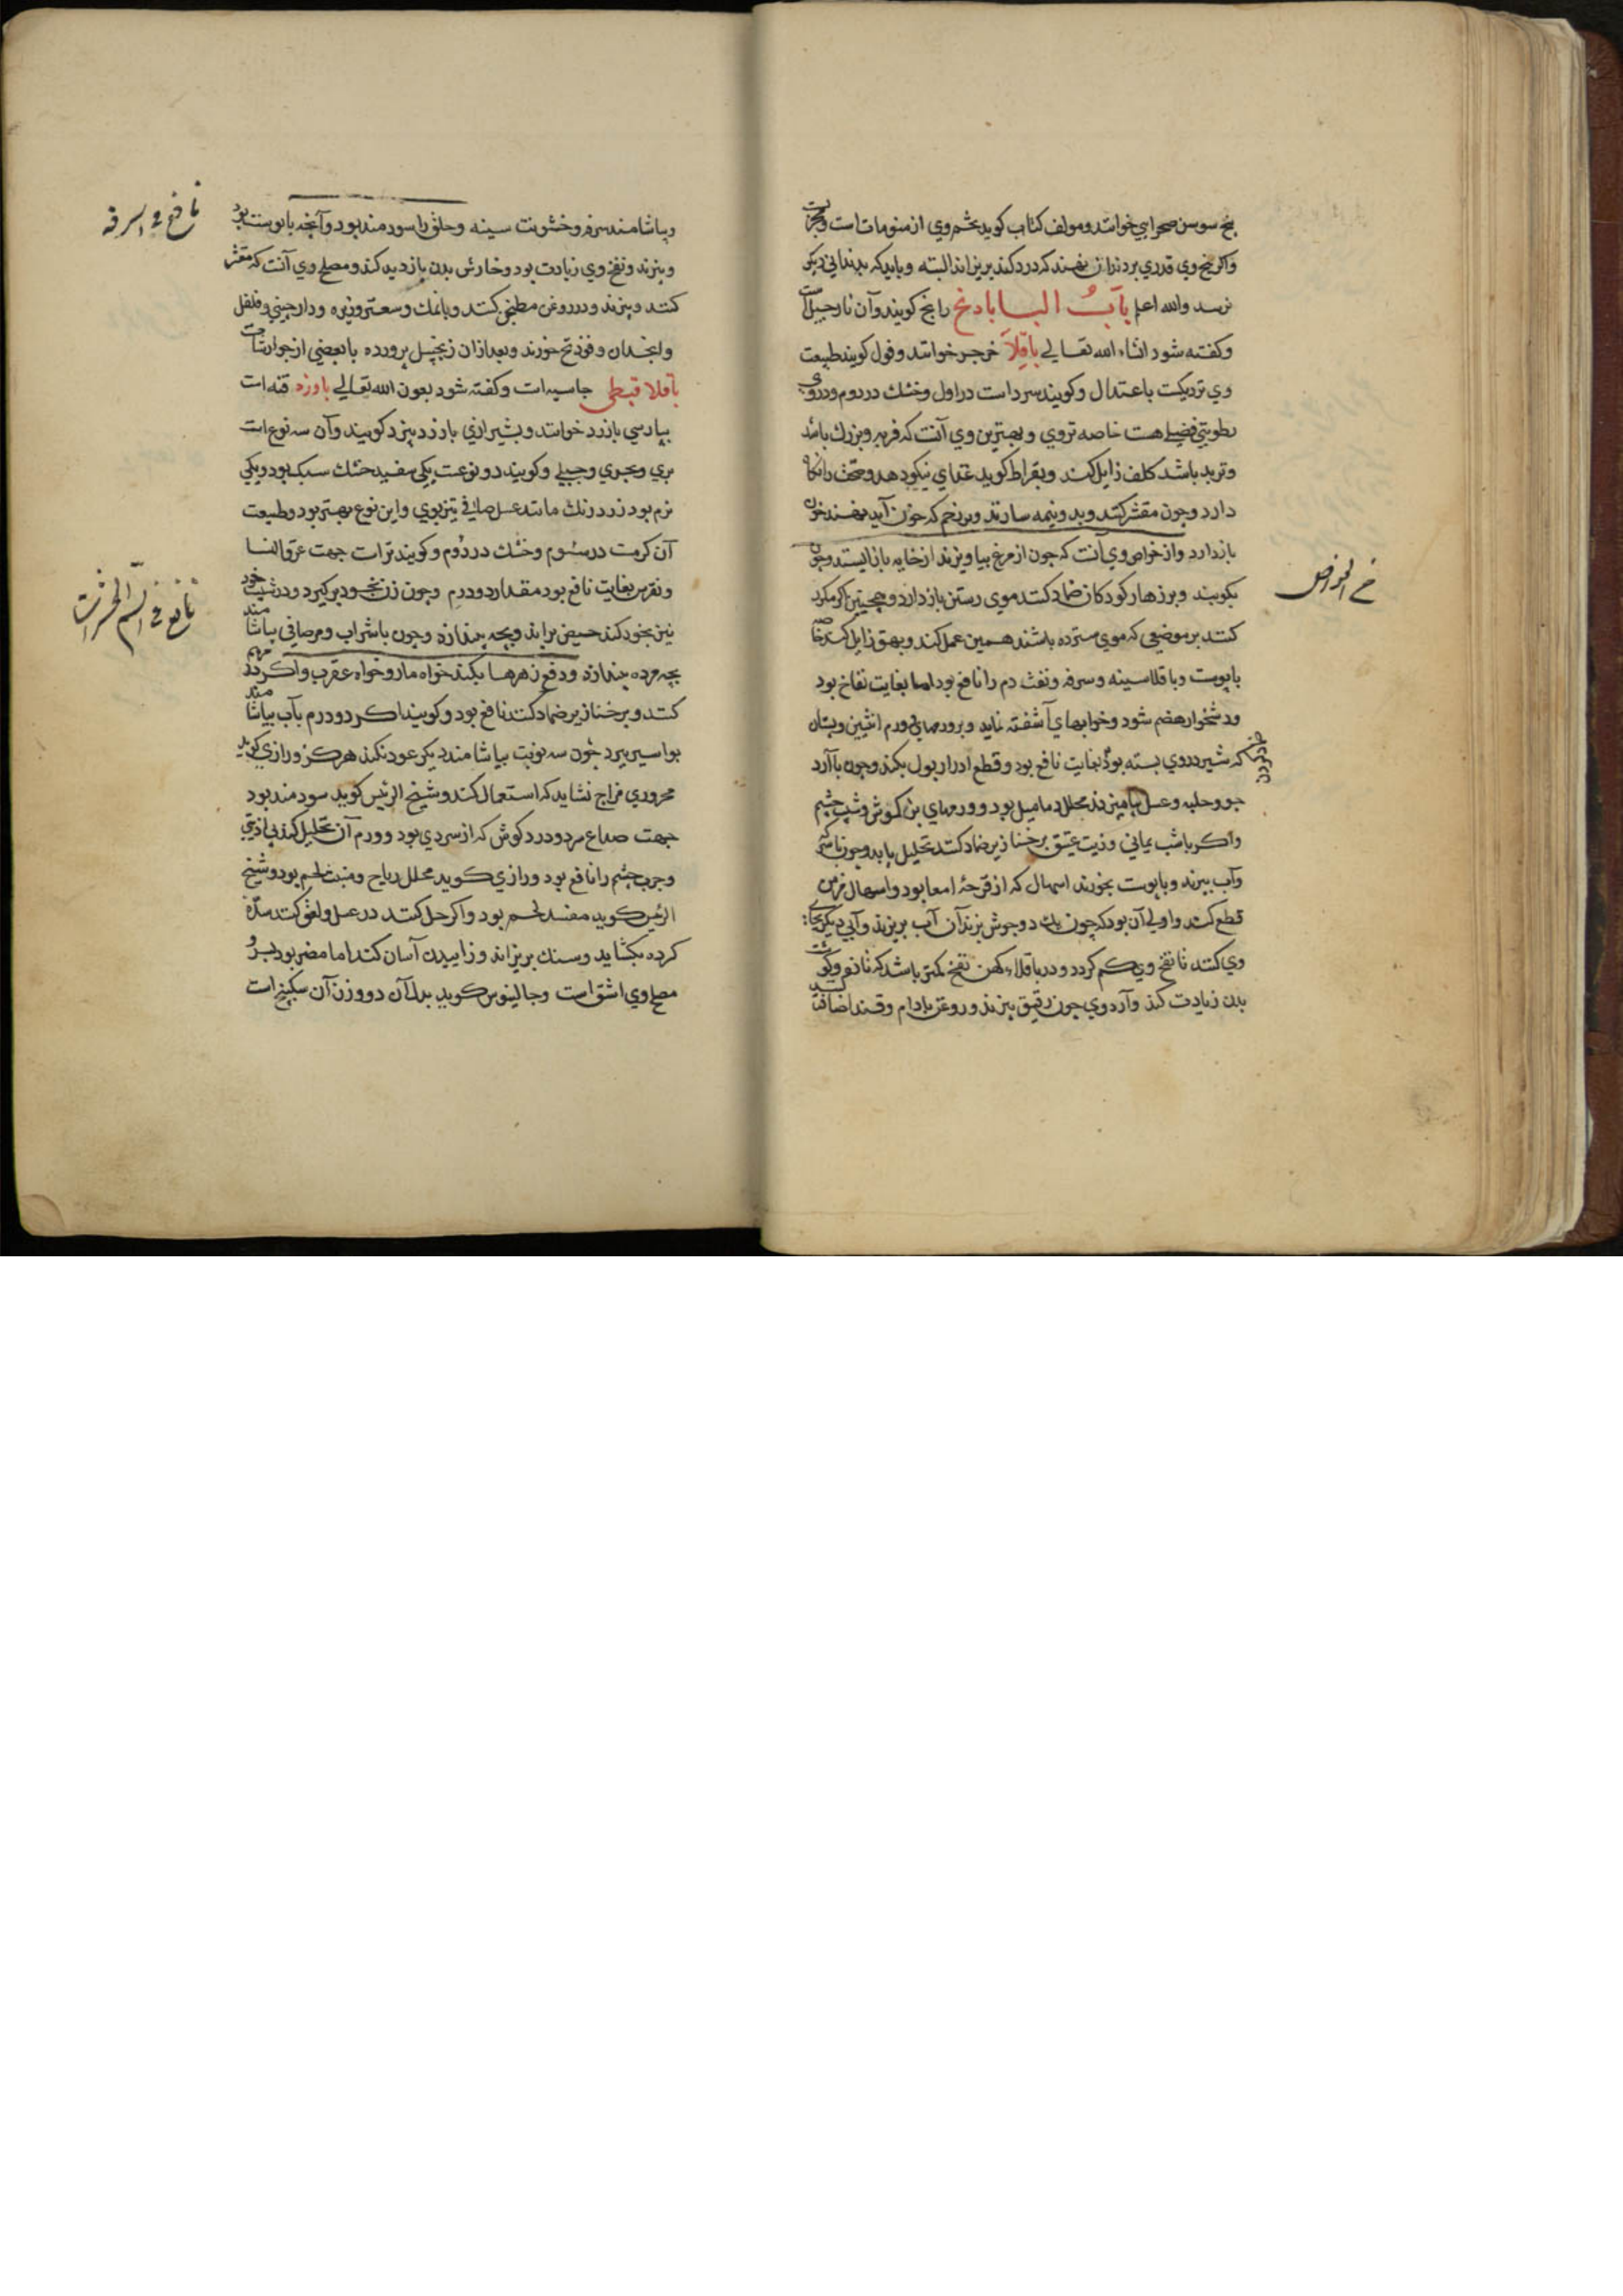 بیخ سوسن صحرایی خوانند و مولف کتاب کوید تخم وی از منومات است و مجربست
واکر بیخ وی قدری بر دندان نهند که درد کند بریزاند البته و باید که بدندانی دیکر
نرسد والله اعلم باب البا بادنج رانج کویند و آن نارجیل است
وکفته شود انشاء الله تعالی باقلا جرجر خوانند و فول کویند طبیعت
وی نزدیکست باعتدال وکویند سرد است در اول وخشك در دوم و در وی
رطوبتی فضیلی هست خاصه تر وی و بهترین وی آنست که فربه و بزرك باشد
وترید باشد کلف زایل کند و بقراط کوید غذای نیکو دهد و صحت را نکاه
دارد وجون مقشر کنند و بدو نیمه سازند و بر زخم که خون آید نهند خون
باز دارد واز خواص وی آنست که جون از مرغ بیاویزند از خایه باز ایستد وجون
بکوبند و بر زهار کودکان ضماد کنند موی رستن باز دارد و همجنین اکر مکرر
کنند بر موضعی که موی سترده باشند همین عمل کند و بهق زایل کند خاصه
با پوست و باقلا سینه و سرفه و نفث دم را نافع بود اما بغایت نفاخ بود
ودشخوار هضم شود وخوابهای آشفته نماید و برورمهای ورم انثیین و پستان
که شیر در وی بسته بود بغایت نافع بود و قطع ادرار بول بکند وجون با آرد
جو وحلبه وعسل بیامیزند محلل دمامیل بود و ورمهای بن کوش و شیب چشم
واکر باشب یمانی وزیت عتیق بر خنازیر ضماد کنند تحلیل یابد وجون با سرکه
وآب بپزند و با پوست بخورند اسهال که از قرحهٔ امعا بود و اسهال مزمن
قطع کند واولی آن بود که جون یك دو جوش بزند آن آب بریزند و آبی دیکر بجای
وی کنند تا نفخ وی کم کردد و در باقلاء کهن نفخ کمتر باشد که تازه و کوشت
بدن زیادت کند و آرد وی جون رقیق بپزند و روغن بادام و قند اضافت کنند
خ الخواص
وبیاشامند سرفه وخشونت سینه وحلق را سودمند بود وآنجه با پوست بود
وبپزند ونفخ وی زیادت بود وخارش بدن بازدید کند و مصلح وی آنست که مقشر
کنند و بپزند و در روغن مطجن کنند و با نمك وسعتر وزیره ودارجینی وفلفل
وانجدان وفودنج خورند وبعد از آن زنجبیل پرورده یا بعضی از جوارشات
باقلا قبطی جاسیه است وکفته شود بعون الله تعالی باوزه قنه است
بپارسی بازرد خوانند و بشیرازی بارزد بیزد کویند وآن سه نوع است
بری وبحری وجبلی وکویند دو نوعست یکی سفید خشك سبك بود ویکی
نرم بود زرد رنك مانند عسل صافی تیزبوی واین نوع بهتر بود وطبیعت
آن کرمست در سئوم وخشك در دوم وکویند تراست جهت عرق النسا
ونقرس بغایت نافع بود مقدار دو درم وجون زن بخود بر کیرد و در شیب خود
نیز بخور کند حیض براند وبچه بیندازد وجون باشراب ومرصافی بیاشامند
بچه مرده بیندازد ودفع زهرها بکند خواه مار وخواه عقرب واکر مرهم
کنند و بر خنازیر ضماد کنند نافع بود وکویند اکر دو درم بآب بیاشامند
بواسیر ببرد جون سه نوبت بیاشامند دیکر عود نکند هرکز ورازی کوید
محروری مزاج نشاید که استعمال کند وشیخ الرئیس کوید سودمند بود
جهت صداع سرد ودرد کوش که از سردی بود و ورم آن تحلیل کند بی اذیتی
وجرب جشم را نافع بود ورازی کوید محلل ریاح ومنبت لحم بود وشیخ
الرئیس کوید مفسد لحم بود واکر حل کنند در عسل ولعق کنند سدّه
کرده بکشاید وسنك بریزاند وزاییدن آسان کند اما مضر بود بسر و
مصلح وی اشق است وجالینوس کوید بدل آن دو وزن آن سکبینج است
نافع فی السرفه
نافع فی السم الحشرات